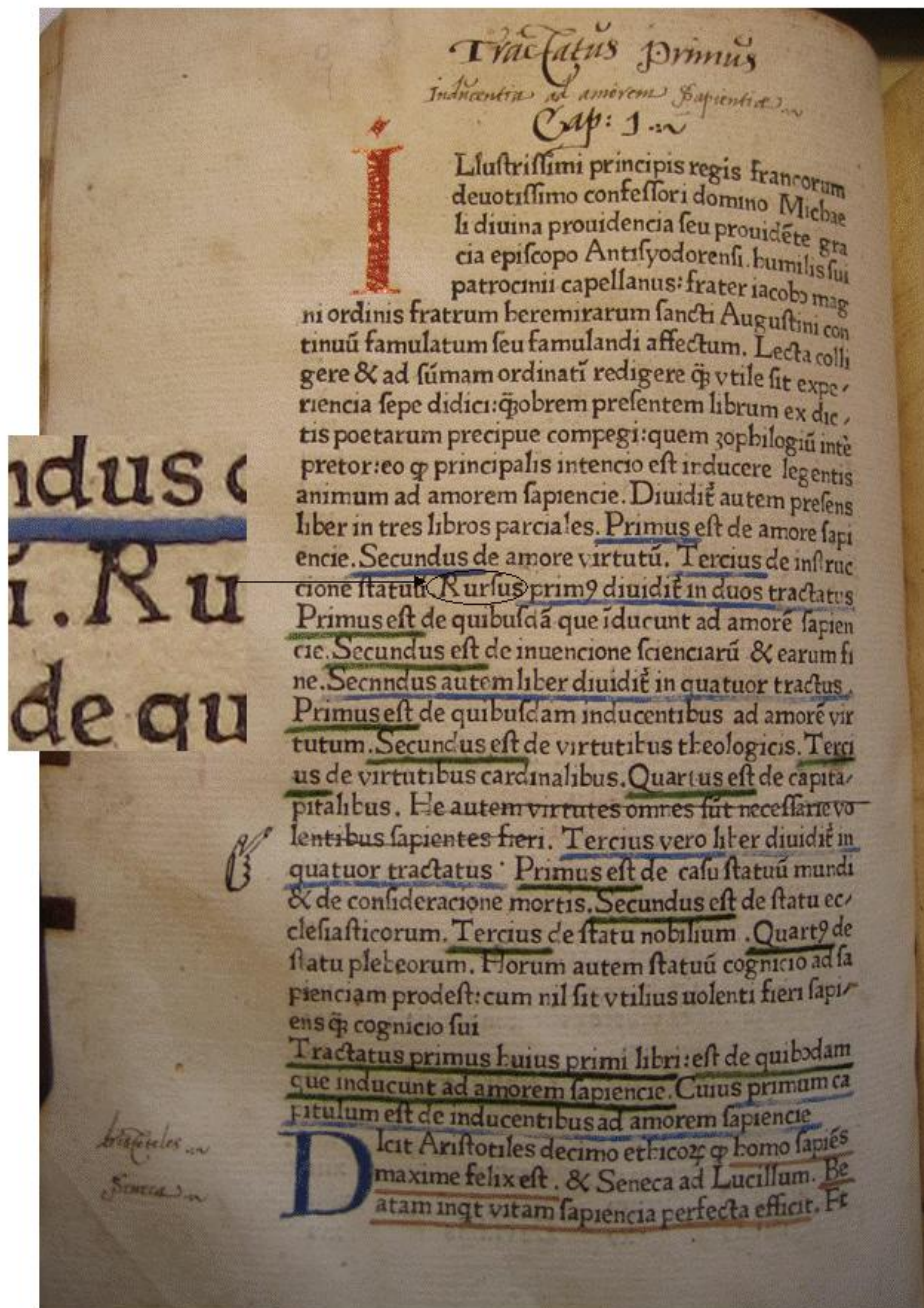 Tractatus Primus
Inducentia ad amorem Sapientiæ
Cap: 1.
ILlustrissimi principis regis francorum
deuotissimo confessori domino Michae
li diuina prouidencia seu prouidēte gra
cia episcopo Antisyodorensi. humilis sui
patrocinii capellanus: frater iacobꝰ mag
ni ordinis fratrum heremirarum sancti Augustini con
tinuū famulatum seu famulandi affectum. Lecta colli
gere & ad sūmam ordinatī redigere q̄ꝫ vtile sit expe/
riencia sepe didici: q̄ꝫobrem presentem librum ex dic/
tis poetarum precipue compegi: quem zophilogiū intè
pretor: eo ꝙ principalis intencio est inducere legentis
animum ad amorem sapiencie. Diuidit̄ autem presens
liber in tres libros parciales. Primus est de amore sapi
encie. Secundus de amore virtutū. Tercius de instruc
cione statuū. Rursus primꝰ diuidit̄ in duos tractatus
Primus est de quibusdā que īducunt ad amorē sapien
cie. Secundus est de inuencione scienciarū & earum fi
ne. Secnndus autem liber diuidit̄ in quatuor tractus.
Primus est de quibusdam inducentibus ad amorē vir
tutum. Secundus est de virtutibus theologicis. Terci
us de virtutibus cardinalibus. Quartus est de capita/
pitalibus. He autem virtutes omnes sūt necessarie vo
lentibus sapientes fieri. Tercius vero liber diuidit̄ in
quatuor tractatus. Primus est de casu statuū mundi
& de consideracione mortis. Secundus est de statu ec/
clesiasticorum. Tercius de statu nobilium. Quartꝰ de
statu plebeorum. Horum autem statuū cognicio ad sa
pienciam prodest: cum nil sit vtilius uolenti fieri sapi/
ens q̄ꝫ cognicio sui
Tractatus primus huius primi libri: est de quibꝰdam
que inducunt ad amorem sapiencie. Cuius primum ca
pitulum est de inducentibus ad amorem sapiencie
DIcit Aristotiles decimo ethicoꝝ ꝙ homo sapiēs
maxime felix est. & Seneca ad Lucillum. Be
atam inqt vitam sapiencia perfecta efficit. Et
Aristoteles
Seneca
ndus
. Ru
de qu